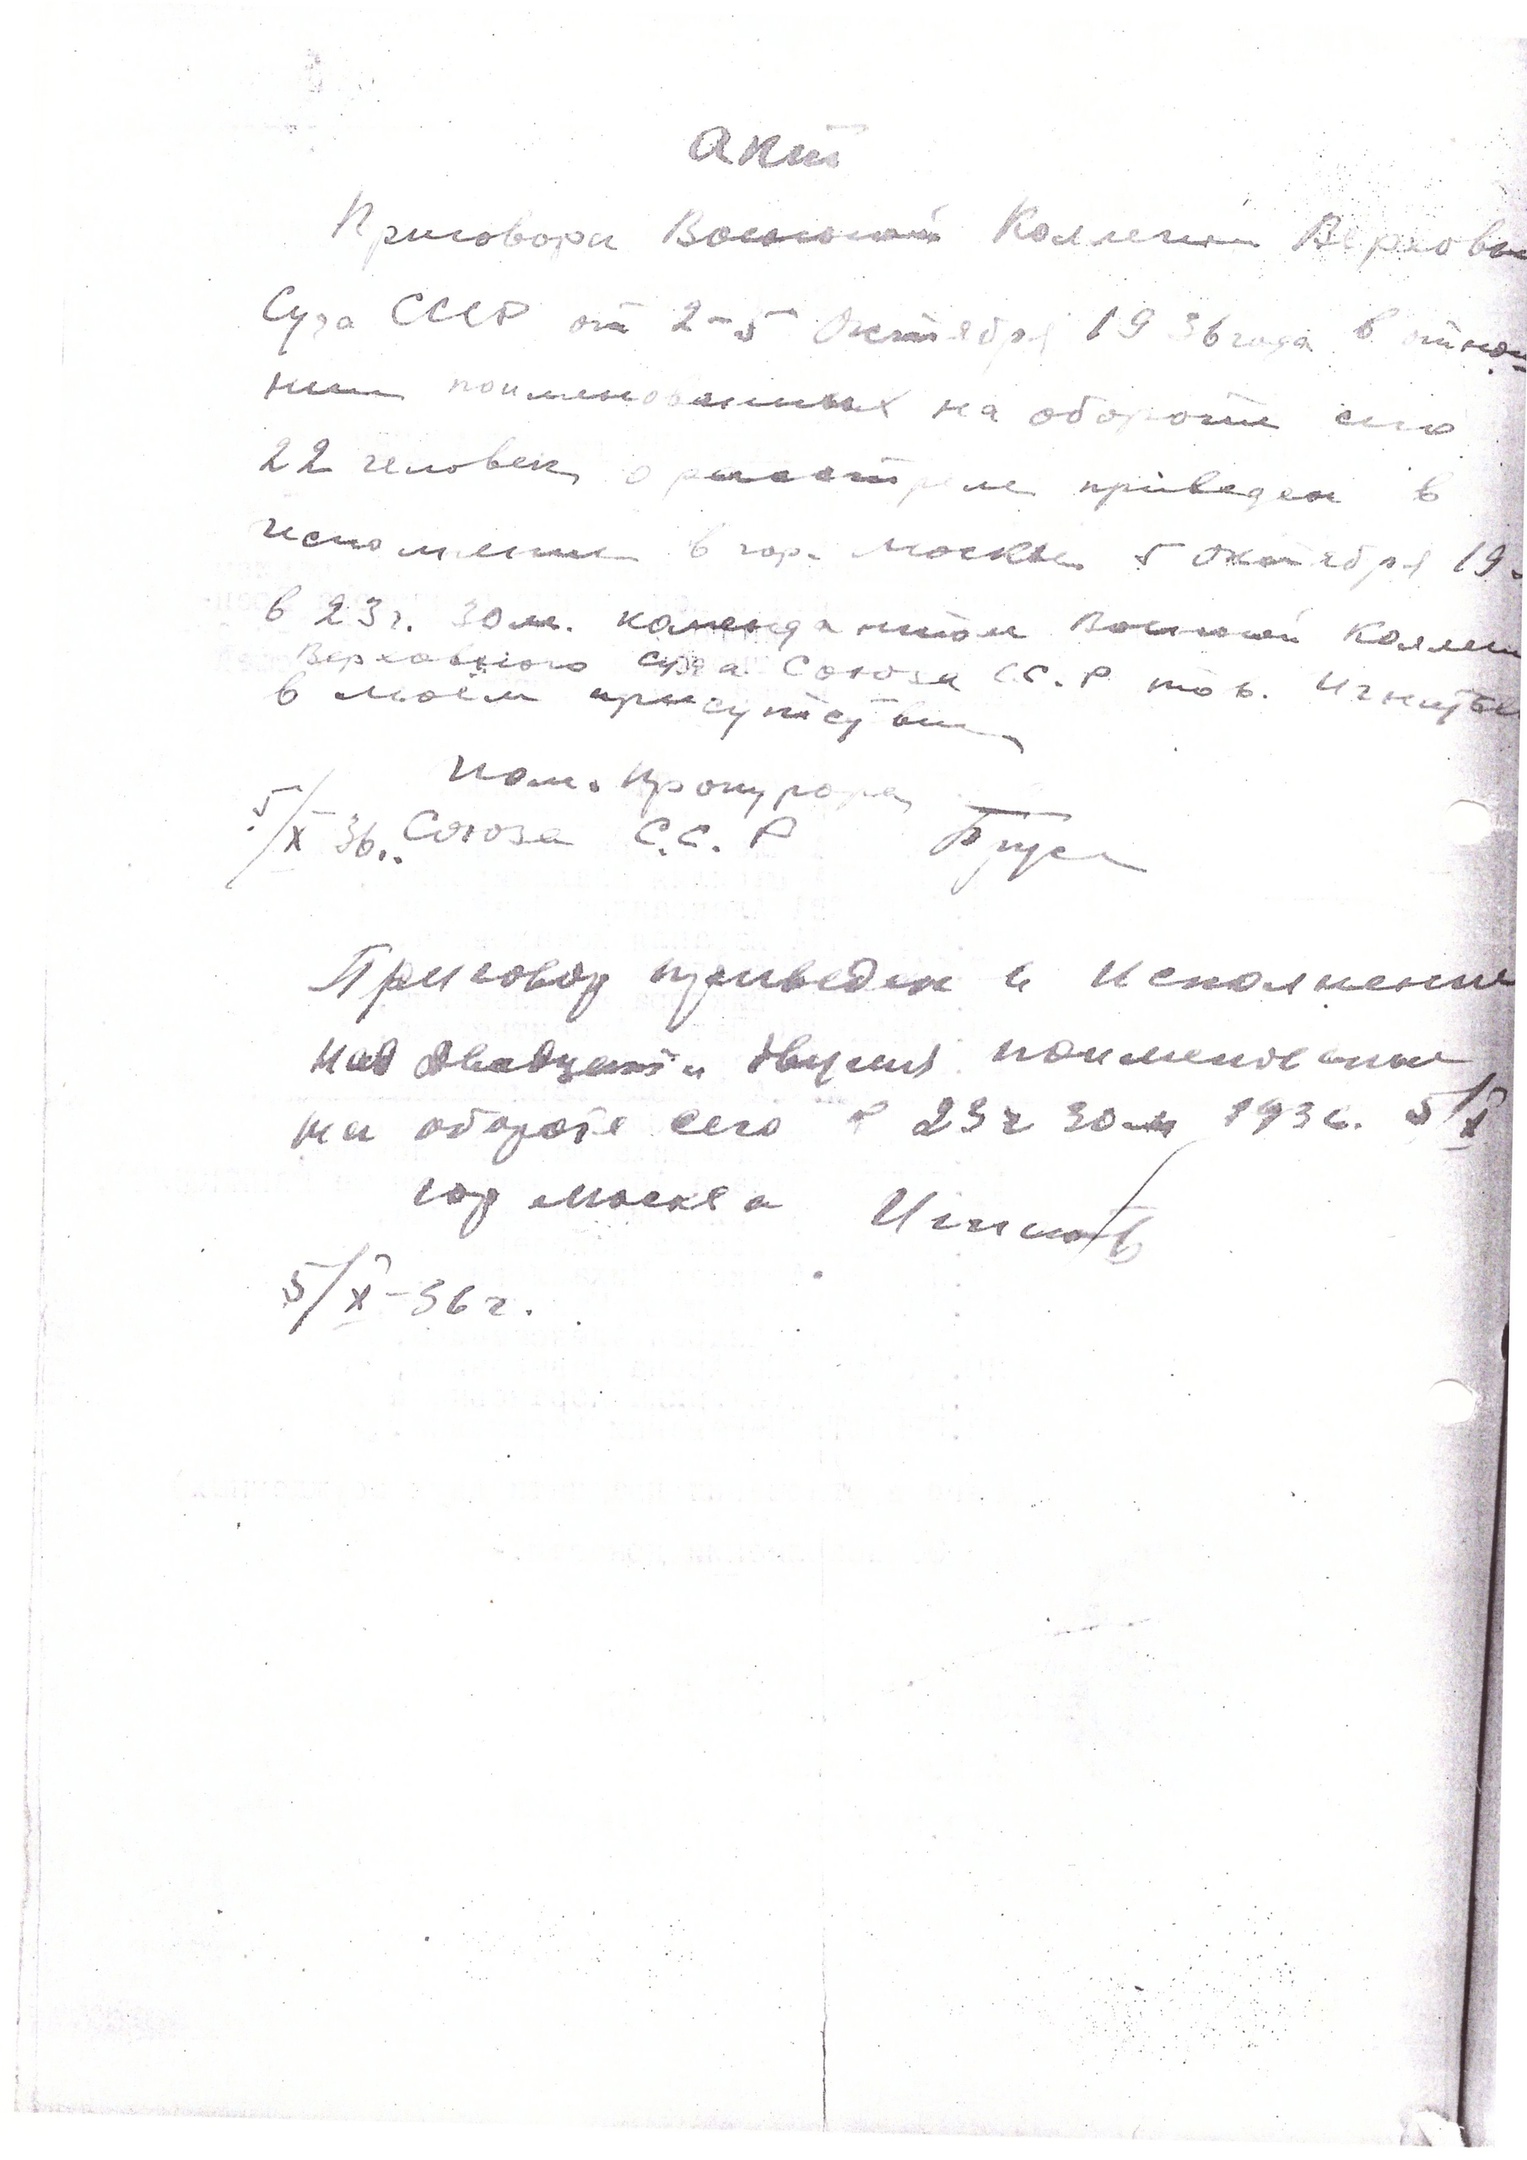 Акт
Приговора Военной Коллегии Верховн
Суда СССР от 2-5 Октября 1936 года в отноше-
нии поименованных на обороте сего
22 человек, о расстреле приведен в
исполнение в гор. Москве 5 октября 19
в 23 г. 30 м. комендантом Военной Коллеги
Верховного суда Союза СС.Р тов. Игнатье
в моём присутствии
Пом. Прокурора
5/X 36.. Союза С.С.Р
Приговор приведен в исполнение
над двадцати двумя поименованы
на обороте сего в 23 ч 30 м 1936. 5/X
гор Москва
5/X-36 г.